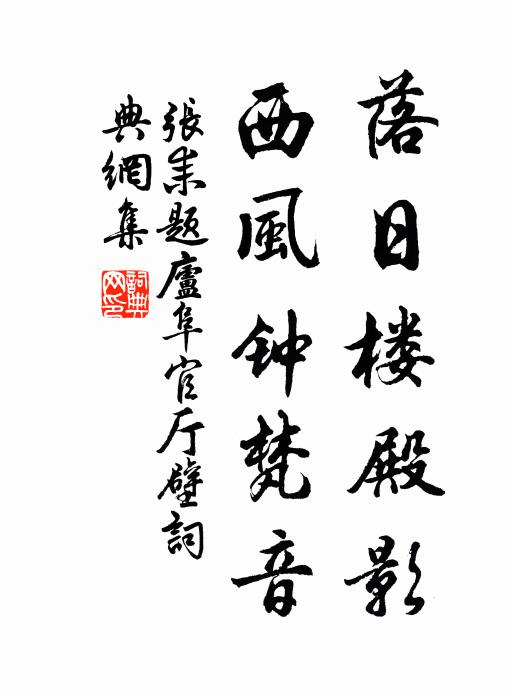 落日楼殿影
西風钟梵音
張耒题廬阜官厅壁詞
典網集
詞典网印